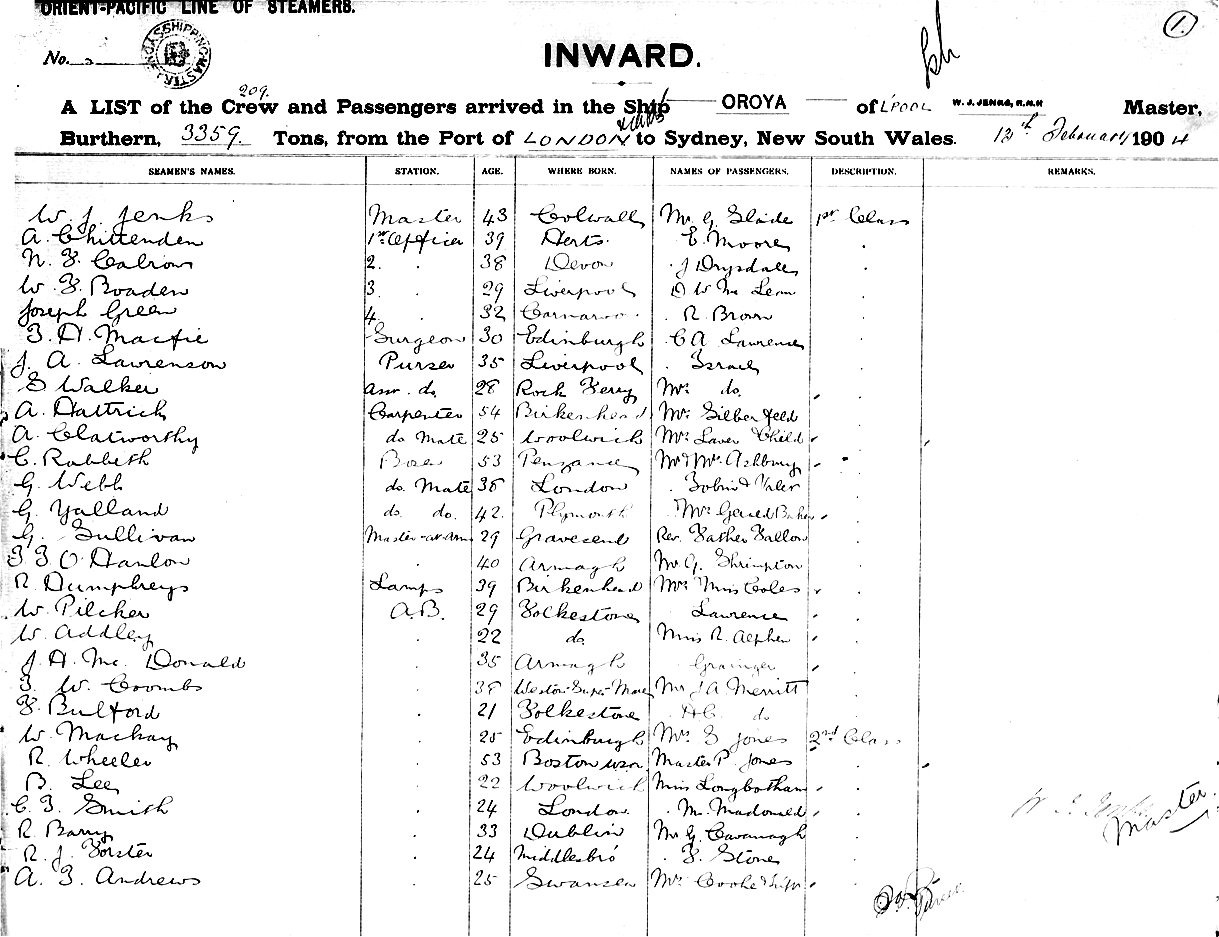 ORIENT-PACIFIC LINE OF STEAMERS.
1.
No.
INWARD.
209.
A LIST of the Crew and Passengers arrived in the Ship OROYA of L'POOL W. J. JENKS, R.N.R Master,
Burthern, 3359. Tons, from the Port of LONDON to Sydney, New South Wales. 13th February 1904
SEAMEN'S NAMES. STATION. AGE. WHERE BORN. NAMES OF PASSENGERS. DESCRIPTION. REMARKS.
W. J. Jenks Master 43 Colwall Mr G Slade 1st Class
A. Chittenden 1st Officer 39 Herts. E. Moore
N. F. Calrow 2. 38 Devon J Drysdale
W. F. Boaden 3. 29 Liverpool D W Mc Lean
Joseph Green 4. 32 R. Brown
F. H. Macfie Surgeon 30 Edinburgh C A Lawrence
J. A. Lawrenson Purser 35 Liverpool Israel
S Walker Assr. do. 28 Rock Ferry Mrs do.
A. Hattrick Carpenter 54 Birkenhead Mrs Silberfeld
A. Clatworthy do Mate 25 Woolwich Mrs Laver Child
C. Rabbeth Bosn 53 Penzance Mr & Mrs Ashbury
G. Webb do. Mate 38 London
G. Yalland do do. 42. Plymouth Mrs Gerald Baker
G. Sullivan Master-at-Arms 29 Gravesend Rev. Father Fallon
F F O'Hanlon 40 Armagh Mr G. Shrimpton
R Humphreys Lamps 39 Birkenhead Mrs Miss Coles
W. Pilcher A.B. 29 Folkestone Lawrence
W. Addley 22 do. Miss R. Alpher
J. H. Mc. Donald 35 Armagh Grainger
F. W. Coombs 38 Weston-Super-Mare Mr J A Merritt
F. Bulford 21 Folkestone H C do
W. Mackay 25 Edinburgh Mrs S Jones 2nd Class
R. Wheeler 53 Boston USA Master P. Jones
B. Lee 22 Woolwich Miss Longbotham
C. F. Smith 24 London M. Macdonald
R. Barry 33 Dublin Mr G. Cavanagh
R. J. Forster 24 Middlesbro' F. Stone
A. F. Andrews 25 Swansea Mrs Cooke
W. J. Jenks
Master